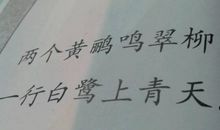 两个黄鹂鸣翠柳
一行白鹭上青天